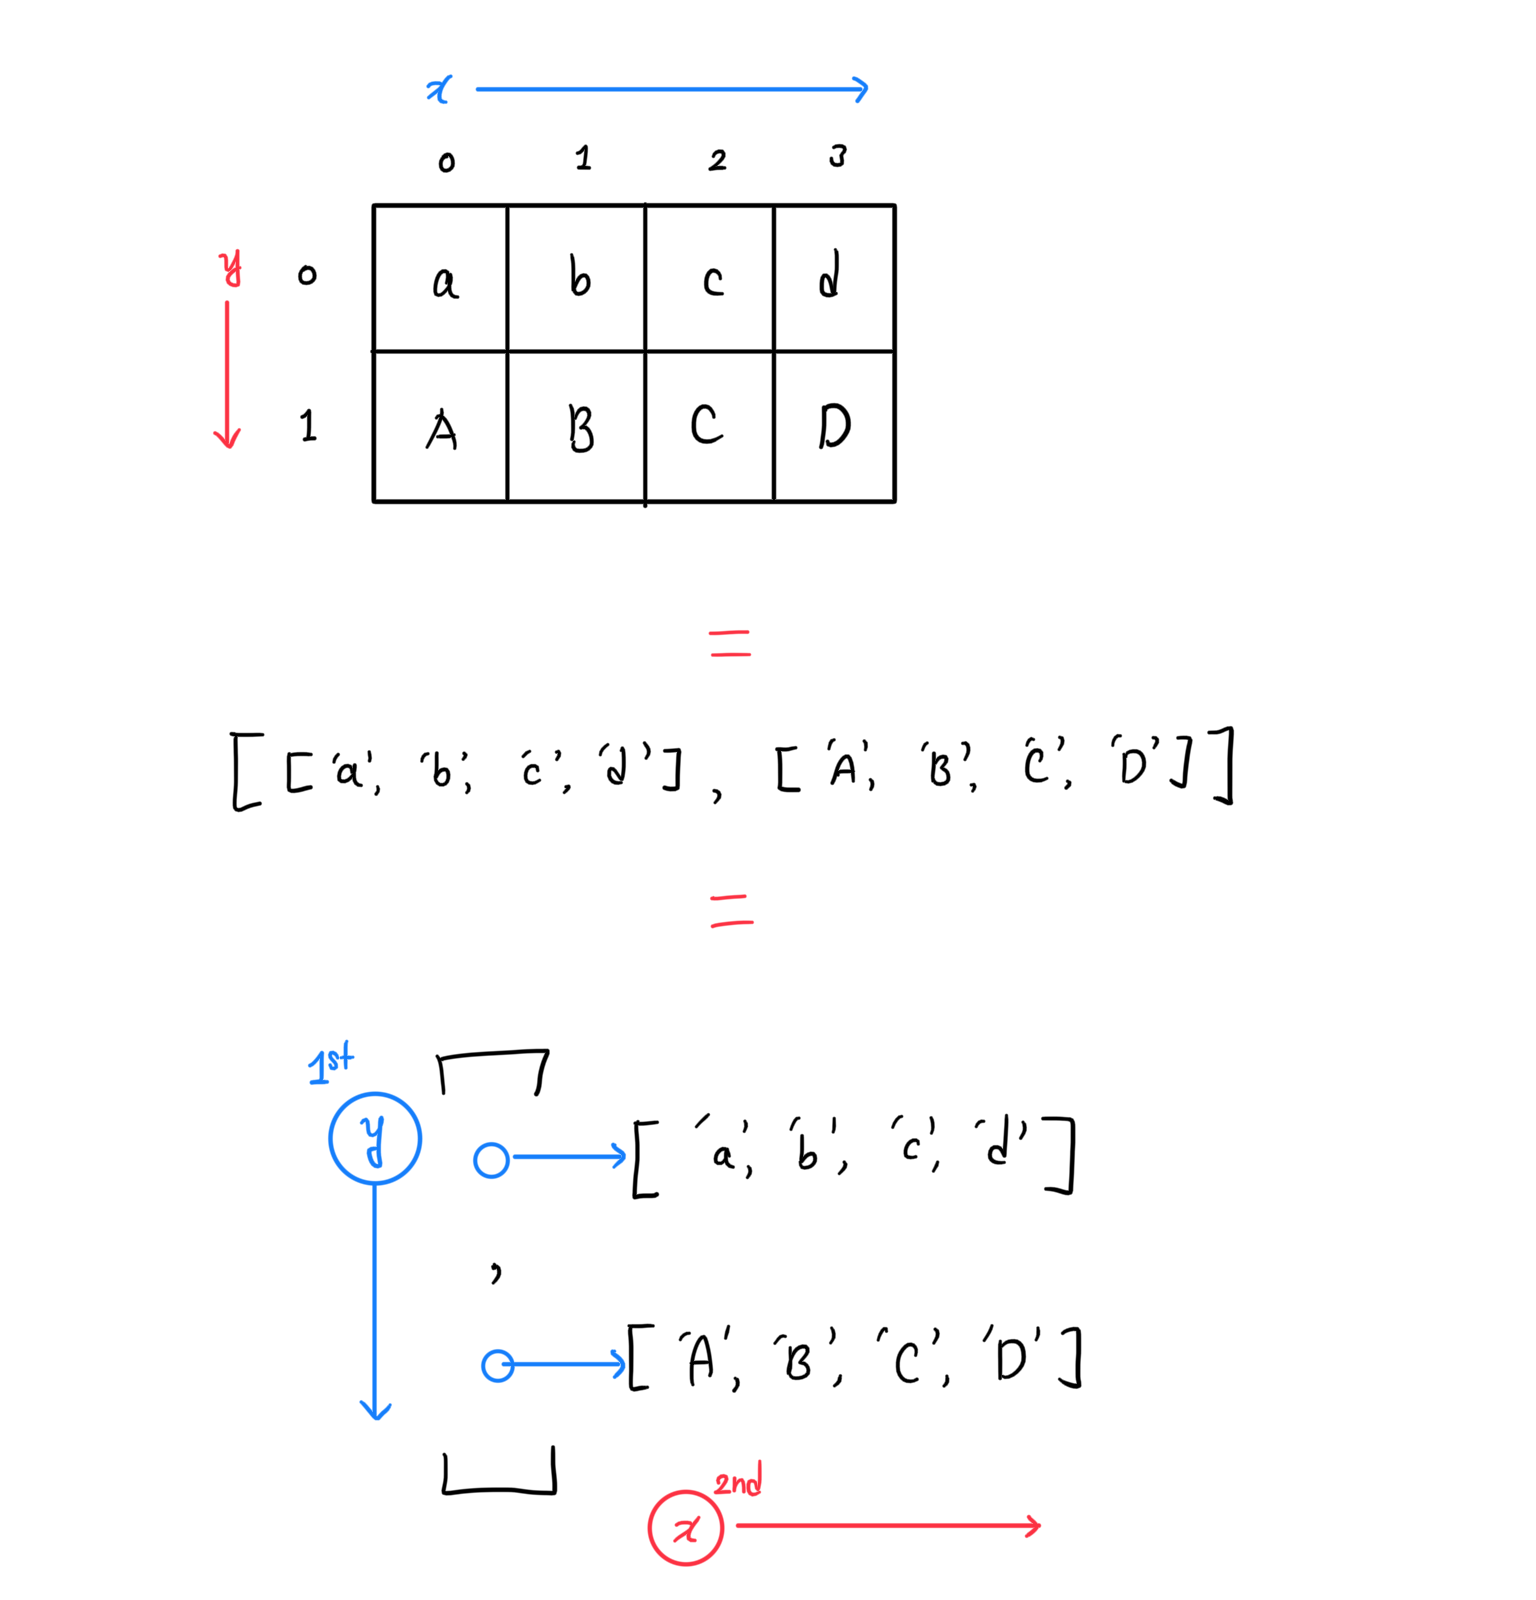 x
0 1 2 3
y 0 a b c d
1 A B C D
=
[['a', 'b', 'c', 'd'], ['A', 'B', 'C', 'D']]
=
1st
y
['a', 'b', 'c', 'd']
,
['A', 'B', 'C', 'D']
2nd
x